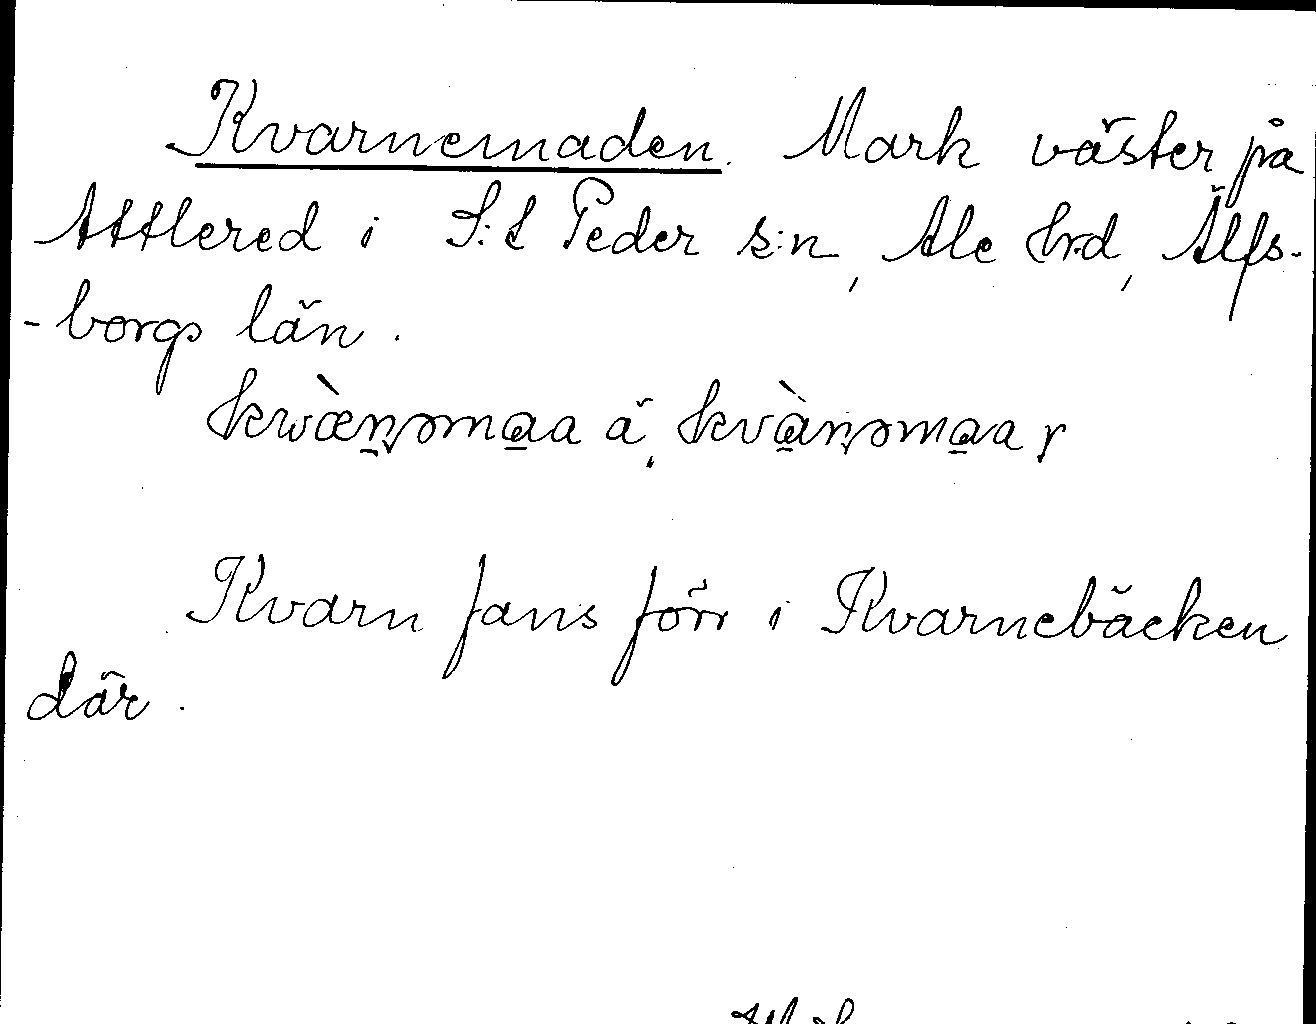 Kvarnemaden. Mark väster på
Attlered i S:t Peder s:n, Ale hrd, Älfs-
-borgs län.
kwæ̀n̠əmaa ä, kvàn̠əmaar
Kvarn fans förr i Kvarnebäcken
där.